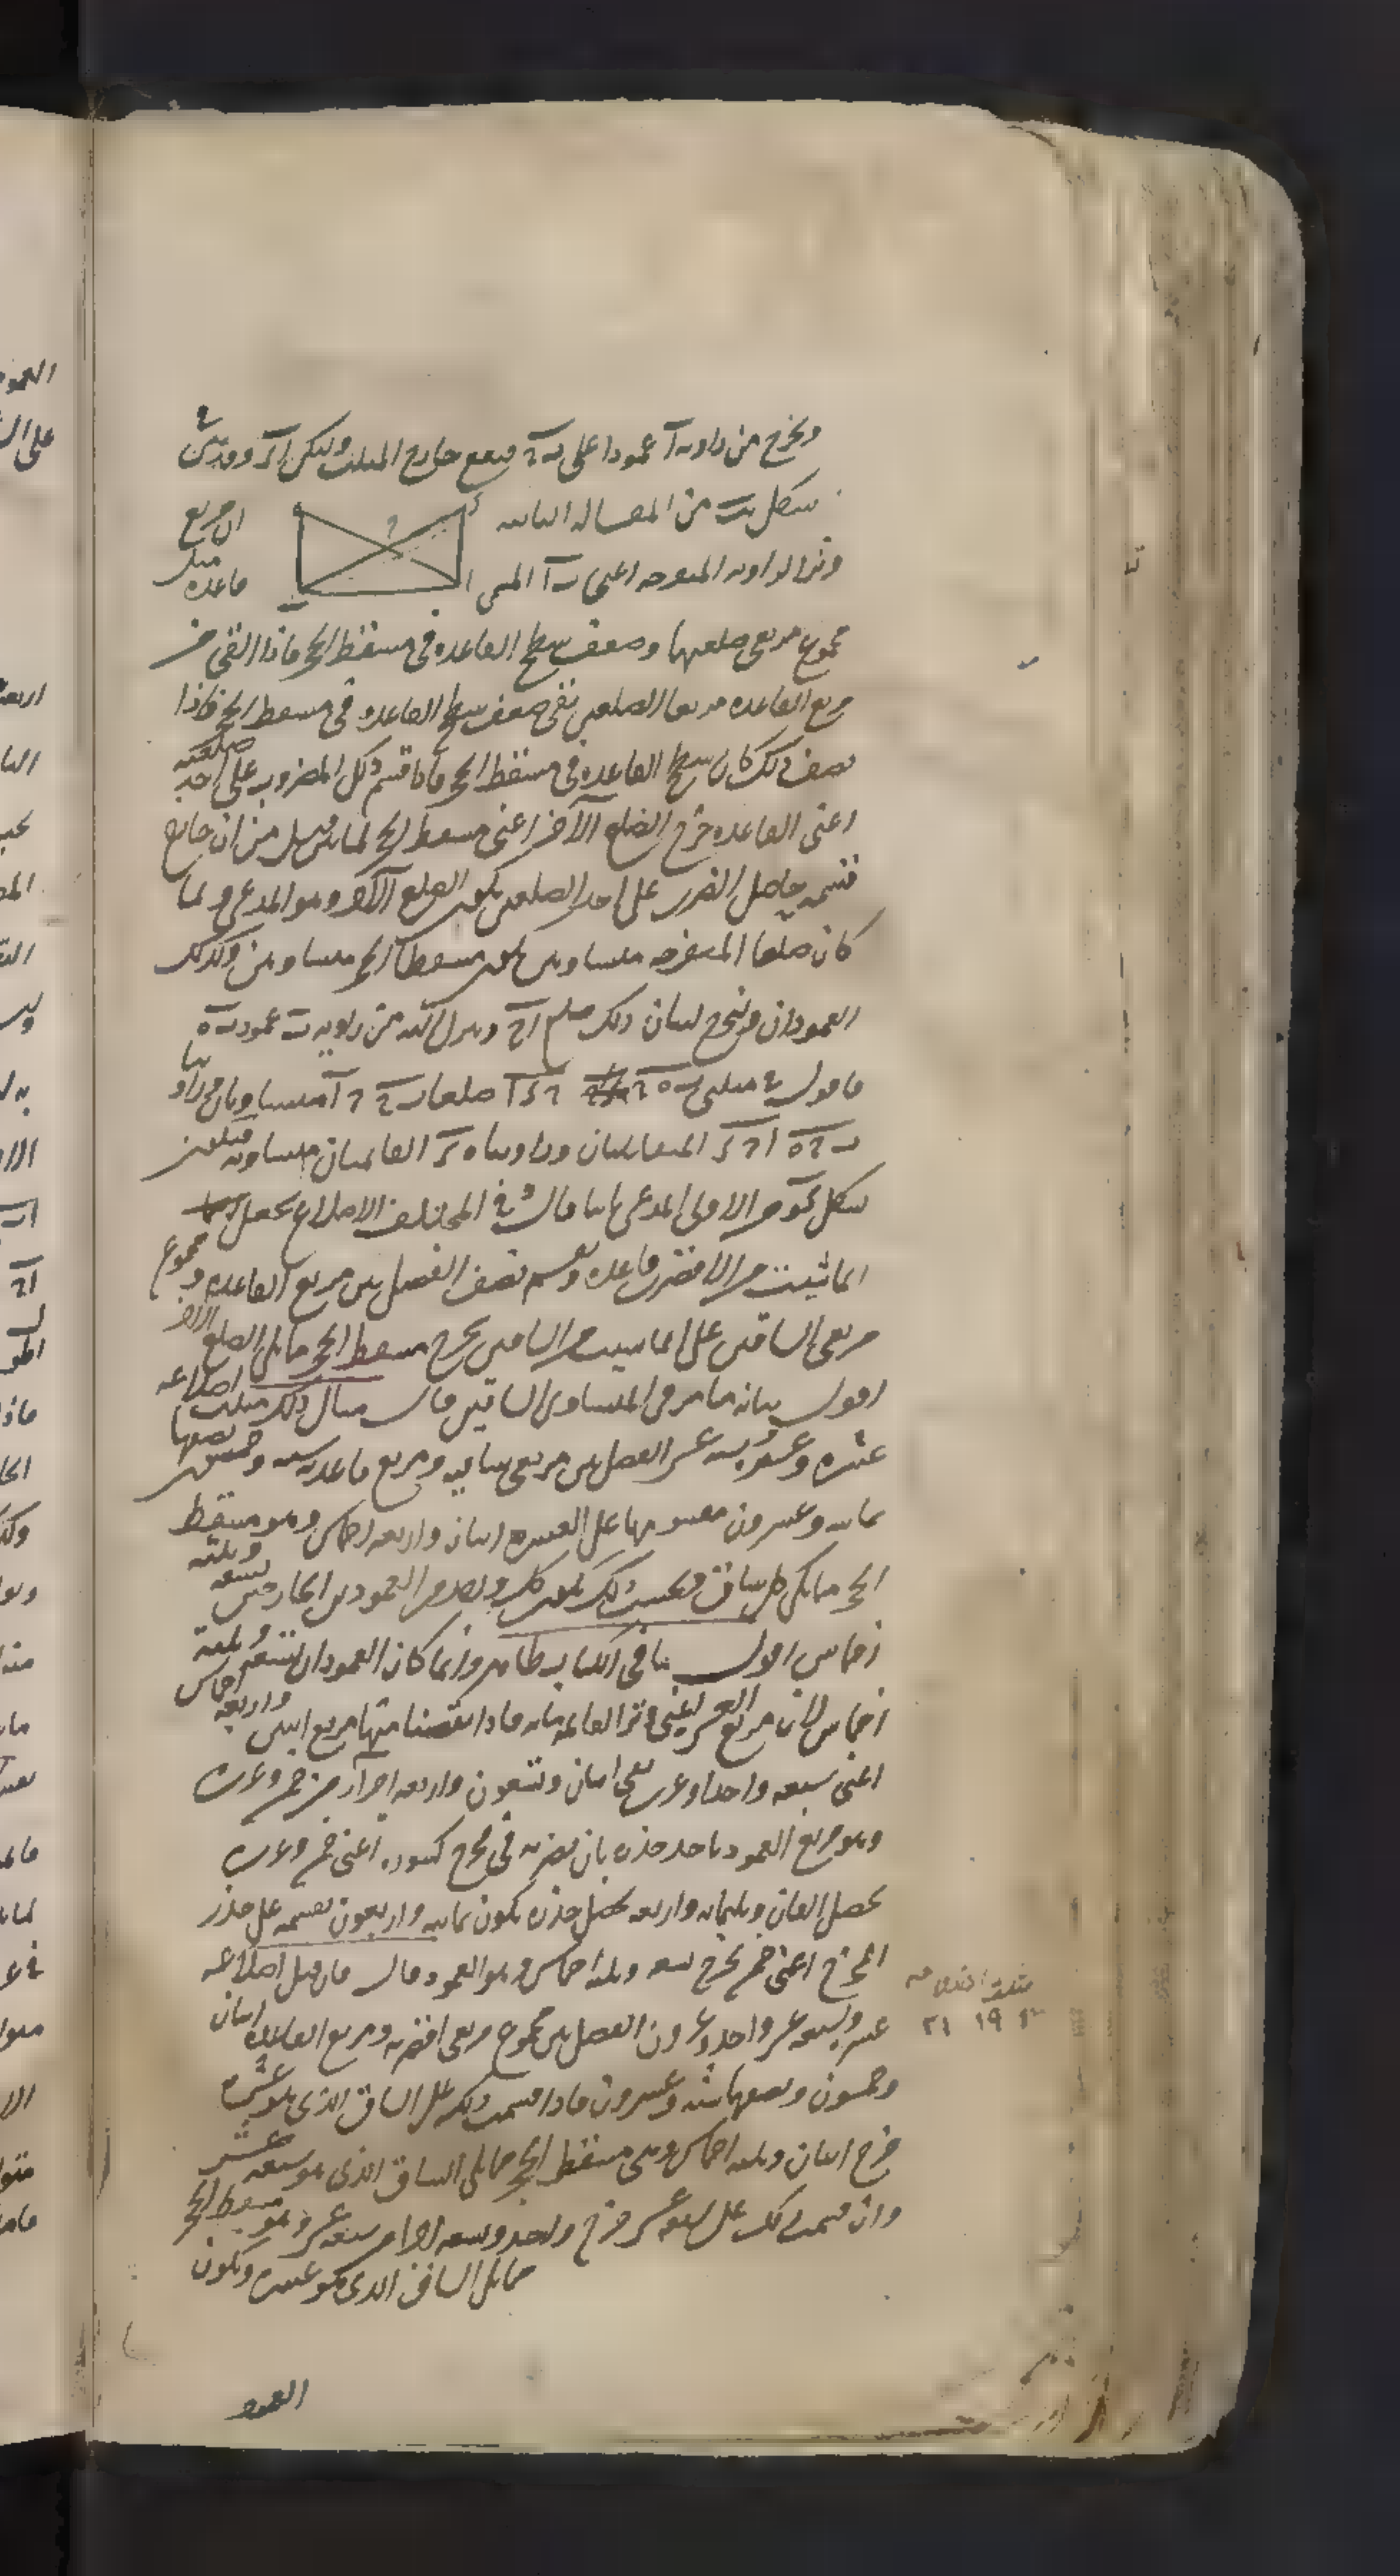 ونخرج من زاوية آ عمودا على ب ح فيقع خارج المثلث وليكن ا ر وقد تبين في
شكل يب من المقالة الثانية ان مربع
وتر الزاوية المنفرجة اعنى ب ا المسى مثل
قاعدة
مجموع مربعى ضلعيها وضعف سطح القاعدة فى مسقط الحجر فاذا القى من
مربع القاعدة مربعا الضلعين بقى ضعف سطح القاعدة فى مسقط الحجر فاذا
نصف ذلك كان سطح القاعدة فى مسقط الحجر فاذا قسم ذلك المضروب على احد ضلعيه
اعنى القاعدة خرج الضلع الآخر اعنى مسقط الحجر لما من قبل من ان خارج
قسمة حاصل الضرب على احد الضلعين يكون الضلع الآخر وهو المدعى ولما
كان ضلعا المنفرجة متساويين يكون مسقطا الحجر متساويين وكذلك
العمودان ولنخرج لبيان ذلك ضلع ا ح وننزل اليه من زاوية ب عمود ب ه
فاقول فى مثلثى ب ه ح ح ر ا ضلعا ب ح ح ا متساويان وزاويتا
ب ح ه ا ح ر المتقابلتان وزاويتا ه ر القائمتان متساوية فيكون
بشكل كو من الاولى المدعى ثابتا قال وفى المختلف الاضلاع نجعل
ايما شئت من الاقصر قاعدة ونقسم نصف الفضل بين مربع القاعدة ومجموع
مربعى الساقين على ايما شئت من الساقين يخرج مسقط الحجر مما يلى الضلع الآخر
اقول بيانه ما مر فى المتساوى الساقين قال مثال ذلك مثلث اضلاعه
عشرة وعشرة وستة عشر الفضل بين مربعى ساقيه ومربع قاعدته ستة وخمسون نصفها
ثمانية وعشرون مقسومها على العشرة اثنان واربعة اخماس وهو مسقط
الحجر مما يلى كل ساق فبحسب ذلك يكون كل واحد من العمودين الخارجين تسعة وثلثة
اخماس اقول ما فى الكتاب ظاهر وانما كان العمودان تسعة وثلثة
اخماس لان مربع العشرة اعنى وتر القائمة مائة فاذا نقصنا منها مربع اثنين واربعة اخماس
اعنى سبعة واحدا وعشرين بقى اثنان وتسعون واربعة اجزاء من خمس وعشرين
وهو مربع العمود ناخذ جذره بان نضربه فى مخرج كسوره اعنى خمس وعشرين
يحصل الفان وثلثمائة واربعة نحصل جذره يكون ثمانية واربعون نقسمه على جذر
المخرج اعنى خمسة يخرج تسعة وثلثة اخماس وهو العمود قال فان قيل اضلاعه
عشرة وسبعة عشر واحد وعشرون الفضل بين مجموع مربعى اقصريه ومربع القاعدة اثنان
وخمسون ونصفها ستة وعشرون فاذا قسمت ذلك على الساق الذى هو عشرة
خرج اثنان وثلثة اخماس وهى مسقط الحجر مما يلى الساق الذى هو سبعة عشر
وان قسمت ذلك على سبعة عشر خرج واحد وتسعة اجزاء من سبعة عشر وهو مسقط الحجر
مما يلى الساق الذى هو عشرة ويكون
العمود
٢١ ١٩